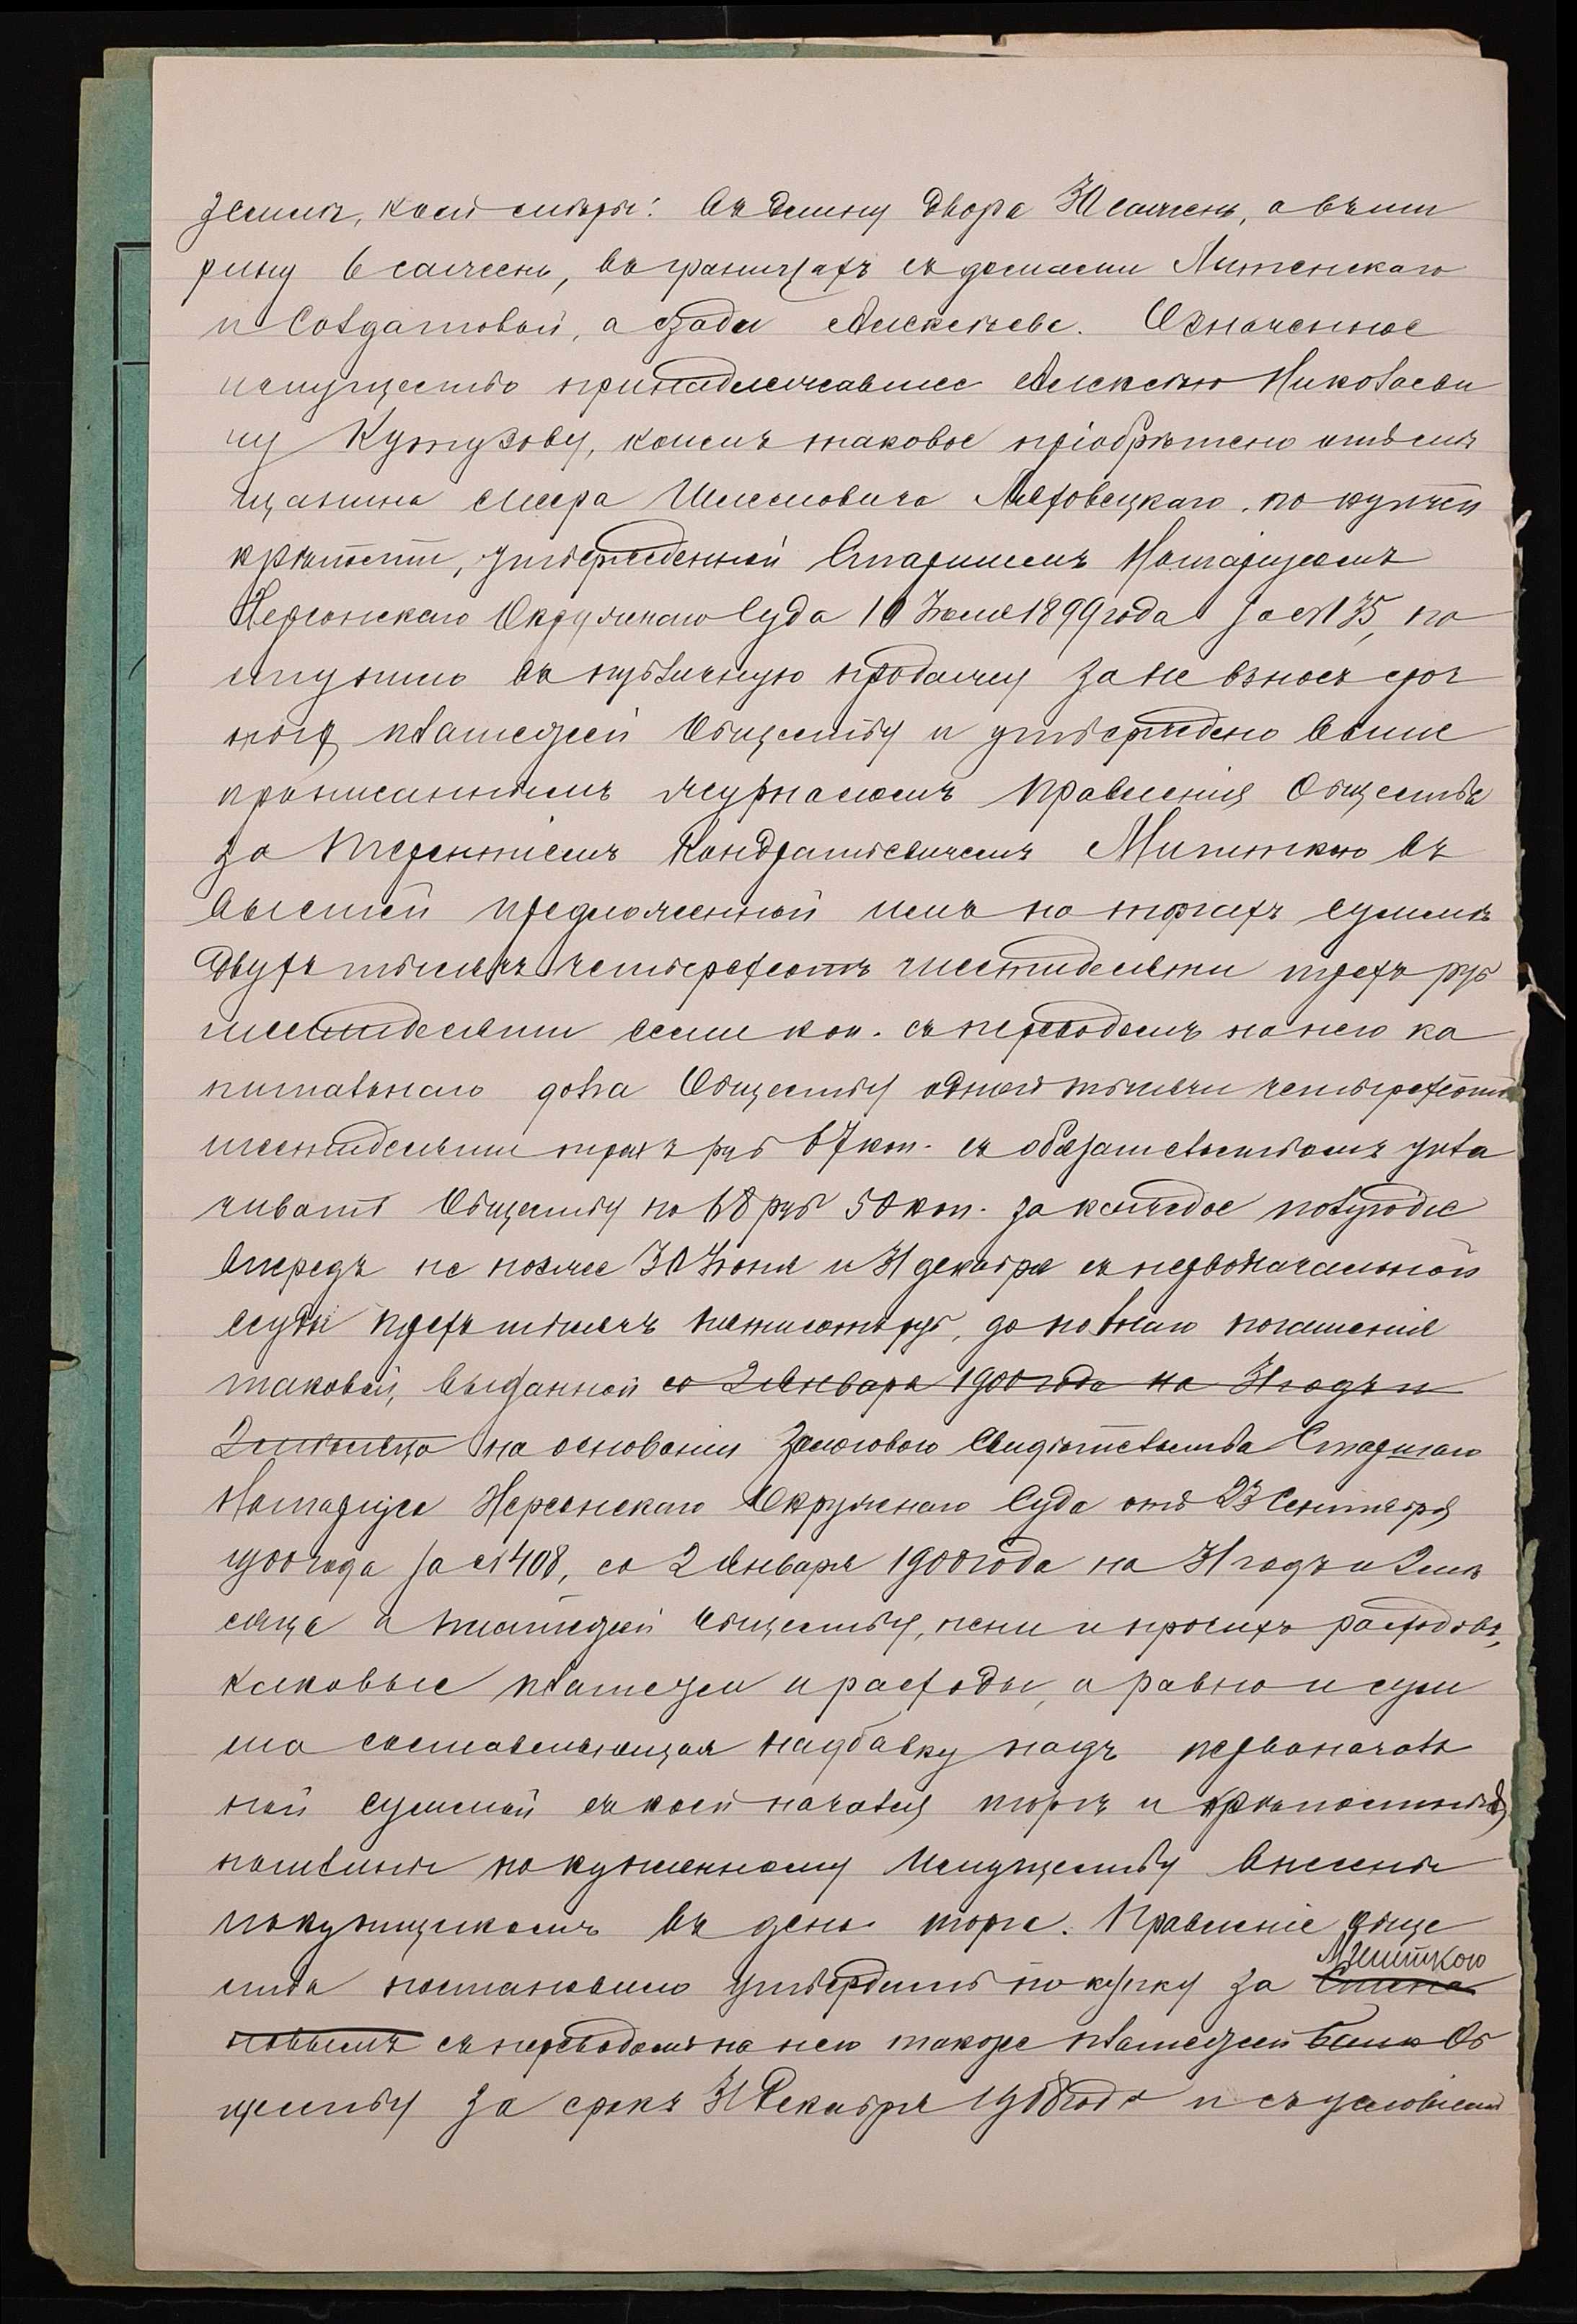 земли, коей мѣры: въ длину двора 30 сажень, а въ ши
рину 6 саженъ, въ границахъ съ домами Литенскаго
и Солдатовой, а сзади Алексѣева. Означенное
имущество принадлежавшее Алексѣю Николаеви
чу Кутузову, коимъ таковое пріобрѣтено отъ мѣ
щанина Меера Шлемовича Ляховецкаго по купчей
крѣпости, утвержденной Старшимъ Нотаріусомъ
Херсонскаго Окружнаго Суда 10 Іюля 1899 года за № 135, по
ступило въ публичную продажу за не взносъ сроч
ныхъ платежей Обществу и утверждено выше
прописаннымъ журналомъ Правленія Общества
за Терентіемъ Кондратьевичемъ въ
высшей предложенной имъ на торгахъ суммѣ
двухъ тысячъ четырехсотъ шестидесяти трехъ руб
шестидесяти семи коп. съ переводомъ на него ка
питальнаго долга Обществу одной тысячи четырехсотъ
шестидесяти трехъ руб 67 коп. съ обязательствомъ упла
чивать Обществу по 68 руб 50 коп. за каждое полугодіе
впередъ не позже 30 Іюня и 31 декабря съ первоначальной
ссуды трехъ тысячъ пятисотъ руб, до полнаго погашенія
таковой, выданной со 2 Января 1900 года на 31 годъ и
2 мѣсяца на основаніи Залогового Свидѣтельства Старшаго
Нотаріуса Херсонскаго Окружнаго Суда отъ 23 Сентября
1900 года за № 408, со 2 Января 1900 года на 31 годъ и 2 мѣ
сяца и платежей Обществу, пени и прочихъ расходовъ,
каковые платежи и расходы, а равно и сум
ма составляющая надбавку надъ первоначаль
ной суммой съ коей начался торгъ и крѣпостныя
пошлины по купленному имуществу внесены
покупщикомъ въ день торга. Правленіе Обще
ства постановило утвердить покупку за
съ переводомъ на него также платежей Банк Об
ществу за срокъ 31 Декабря 1908 года и съ условіемъ